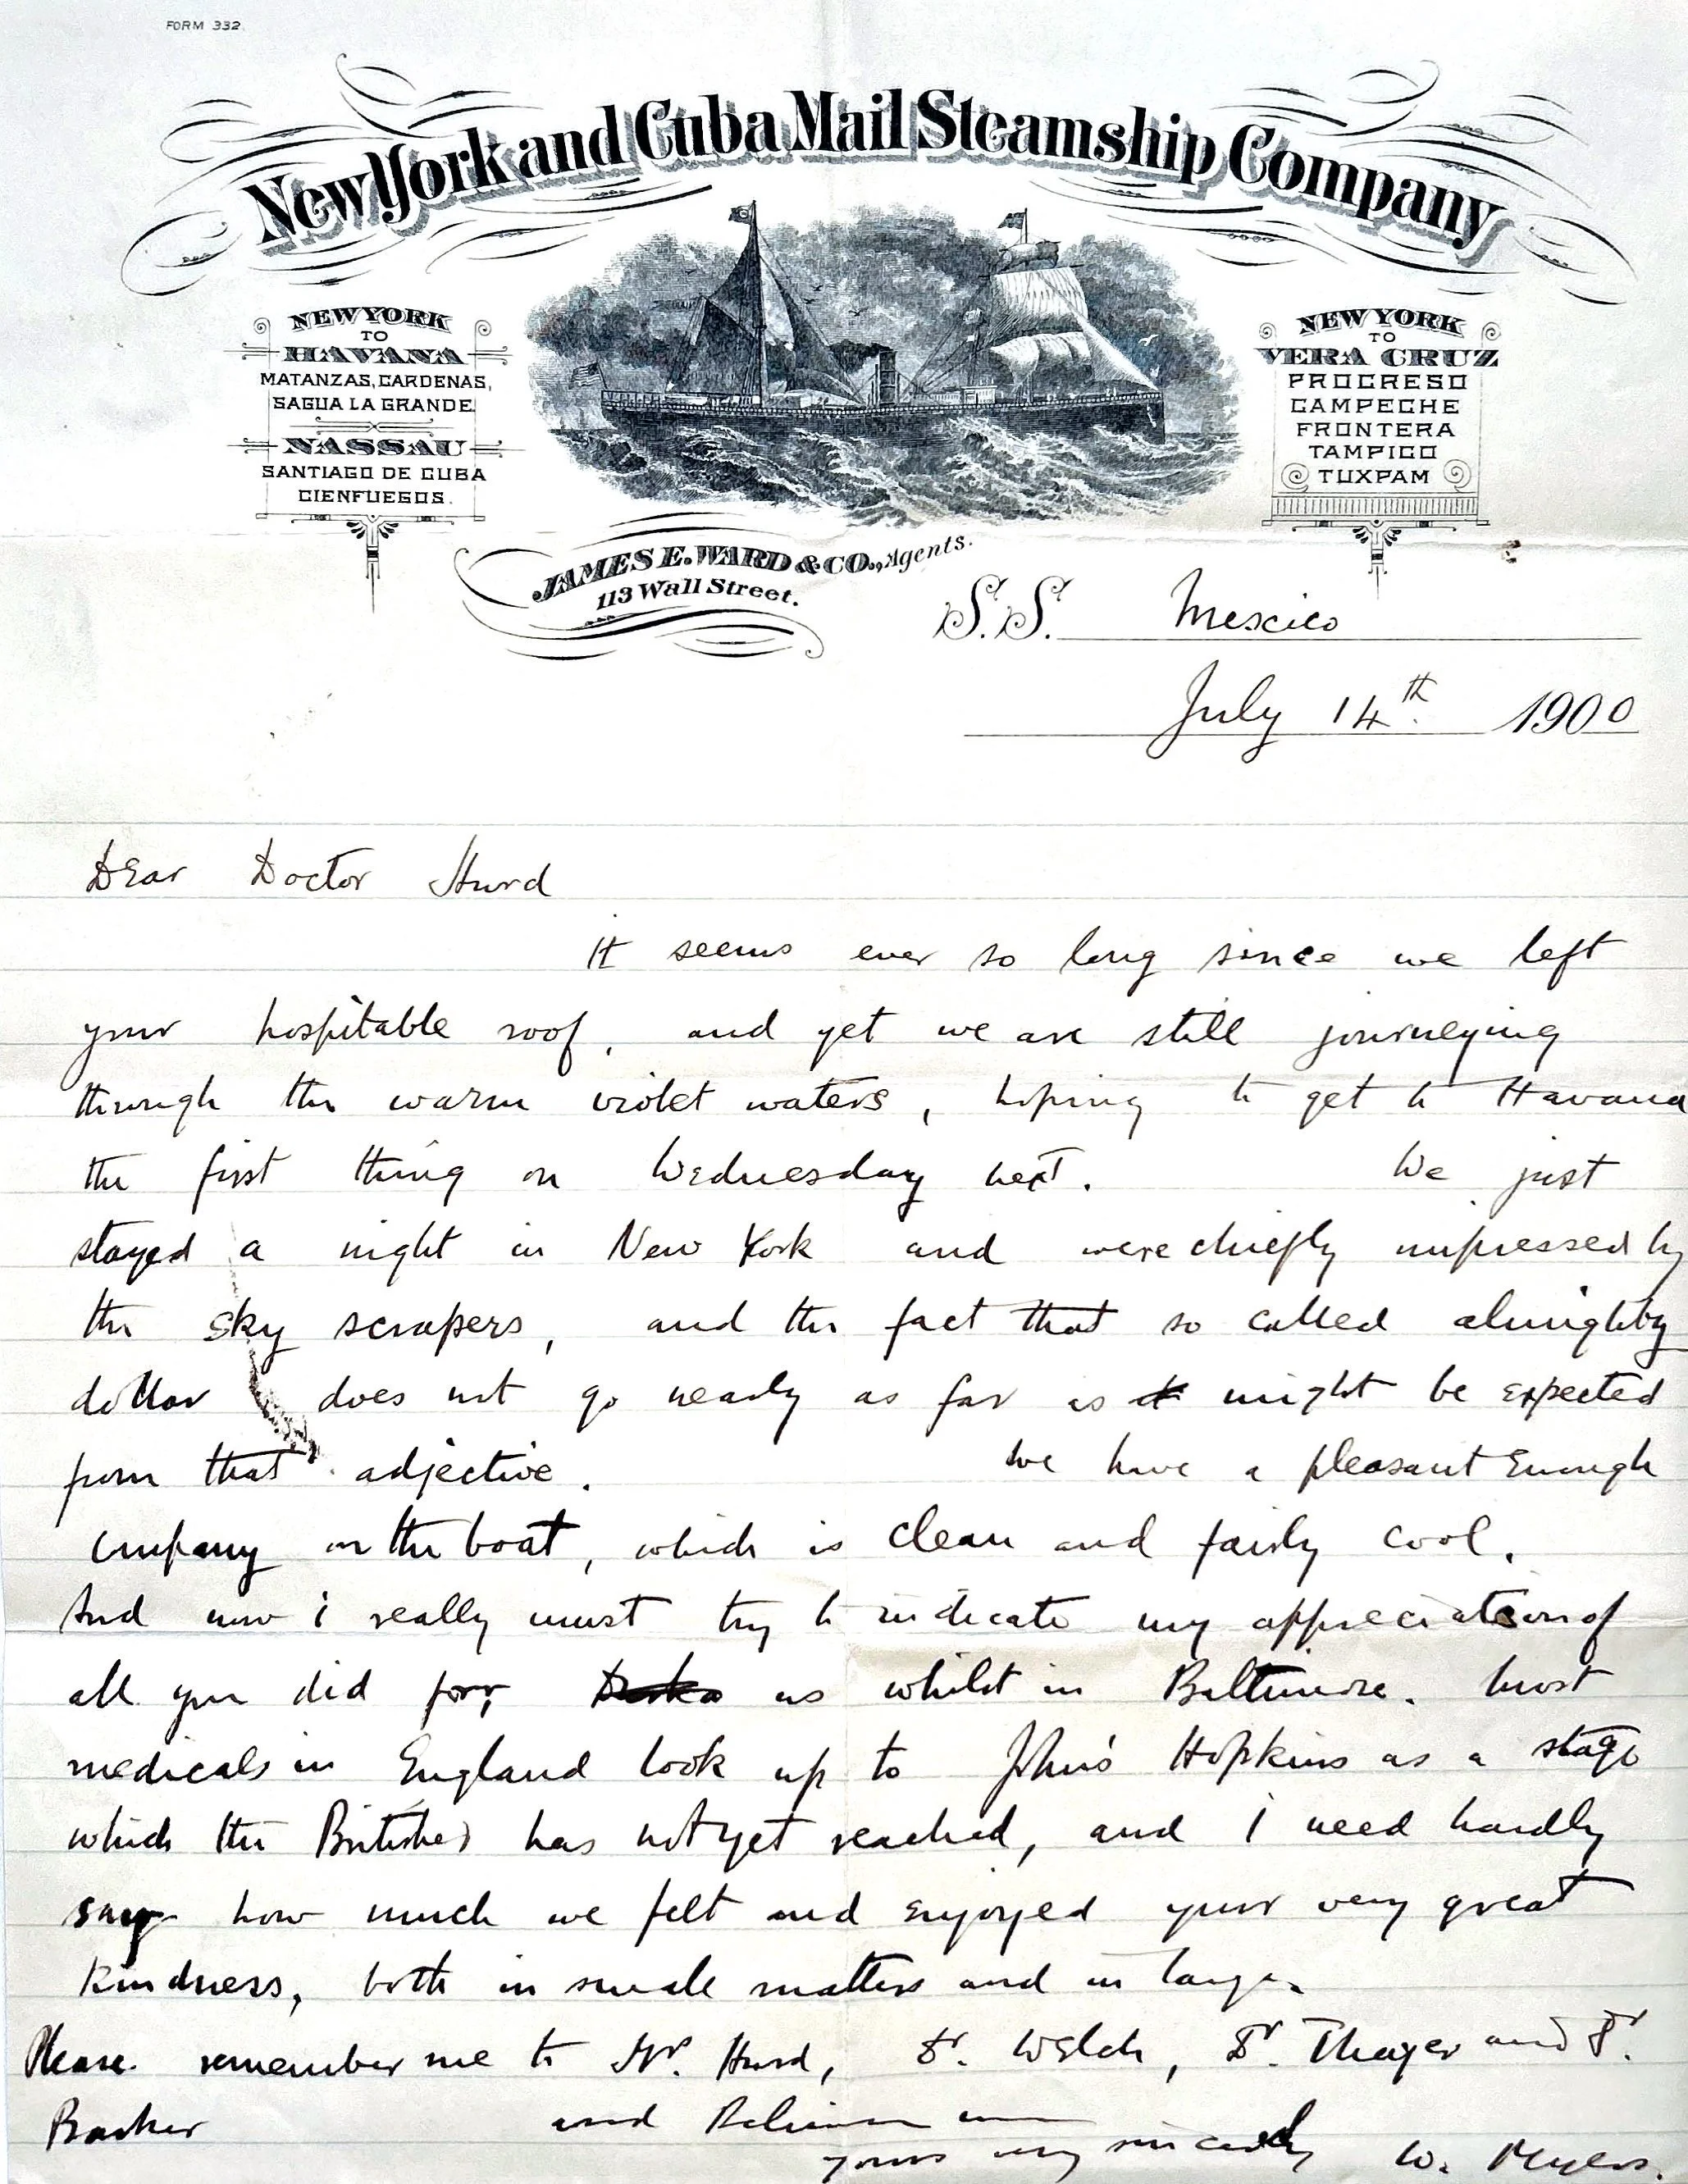 FORM 332
New York and Cuba Mail Steamship Company
NEW YORK
TO
HAVANA
MATANZAS, CARDENAS,
SAGUA LA GRANDE
NASSAU
SANTIAGO DE CUBA
CIENFUEGOS.
NEW YORK
TO
VERA CRUZ
PROGRESO
CAMPECHE
FRONTERA
TAMPICO
TUXPAM
JAMES E. WARD & CO., Agents.
113 Wall Street.
S.S. Mexico
July 14th. 1900
Dear Doctor Hurd
It seems ever so long since we left
your hospitable roof, and yet we are still journeying
through the warm violet waters, hoping to get to Havana
the first thing on Wednesday next. We just
stayed a night in New York and were chiefly impressed by
the sky scrapers, and the fact that so called almighty
dollar does not go nearly as far as it might be expected
from that adjective. We have a pleasant enough
company on the boat, which is clean and fairly cool.
And now I really must try to indicate my appreciation of
all you did for us whilst in Baltimore. Most
medicals in England look up to John's Hopkins as a stage
which the Britisher has not yet reached, and I need hardly
say how much we felt and enjoyed your very great
kindness, both in small matters and in large.
Please remember me to Mr. Hurd, Dr. Welch, Dr. Thayer and Dr.
Barker and Believe me
yours very sincerely W. Myers.